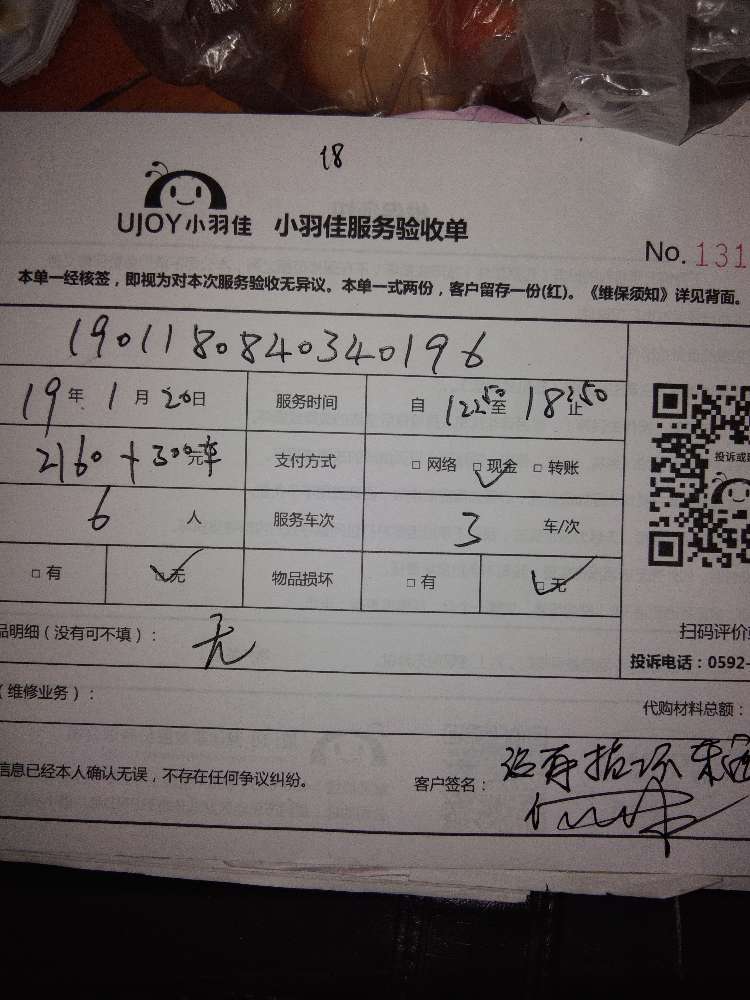 18
UJOY小羽佳 小羽佳服务验收单
No. 131
本单一经核签，即视为对本次服务验收无异议。本单一式两份，客户留存一份(红)。《维保须知》详见背面。
1901180840340196
19年 1月 20日 服务时间 自 12 50 至 18 50 止
2160 + 300元车 支付方式 □ 网络 □ 现金 □ 转账
投诉或
6 人 服务车次 3 车/次
□ 有 □ 无 物品损坏 □ 有 □ 无
品明细（没有可不填）： 无
扫码评价
投诉电话：0592-
（维修业务）：
代购材料总额：
信息已经本人确认无误，不存在任何争议纠纷。 客户签名：
没有损坏东西